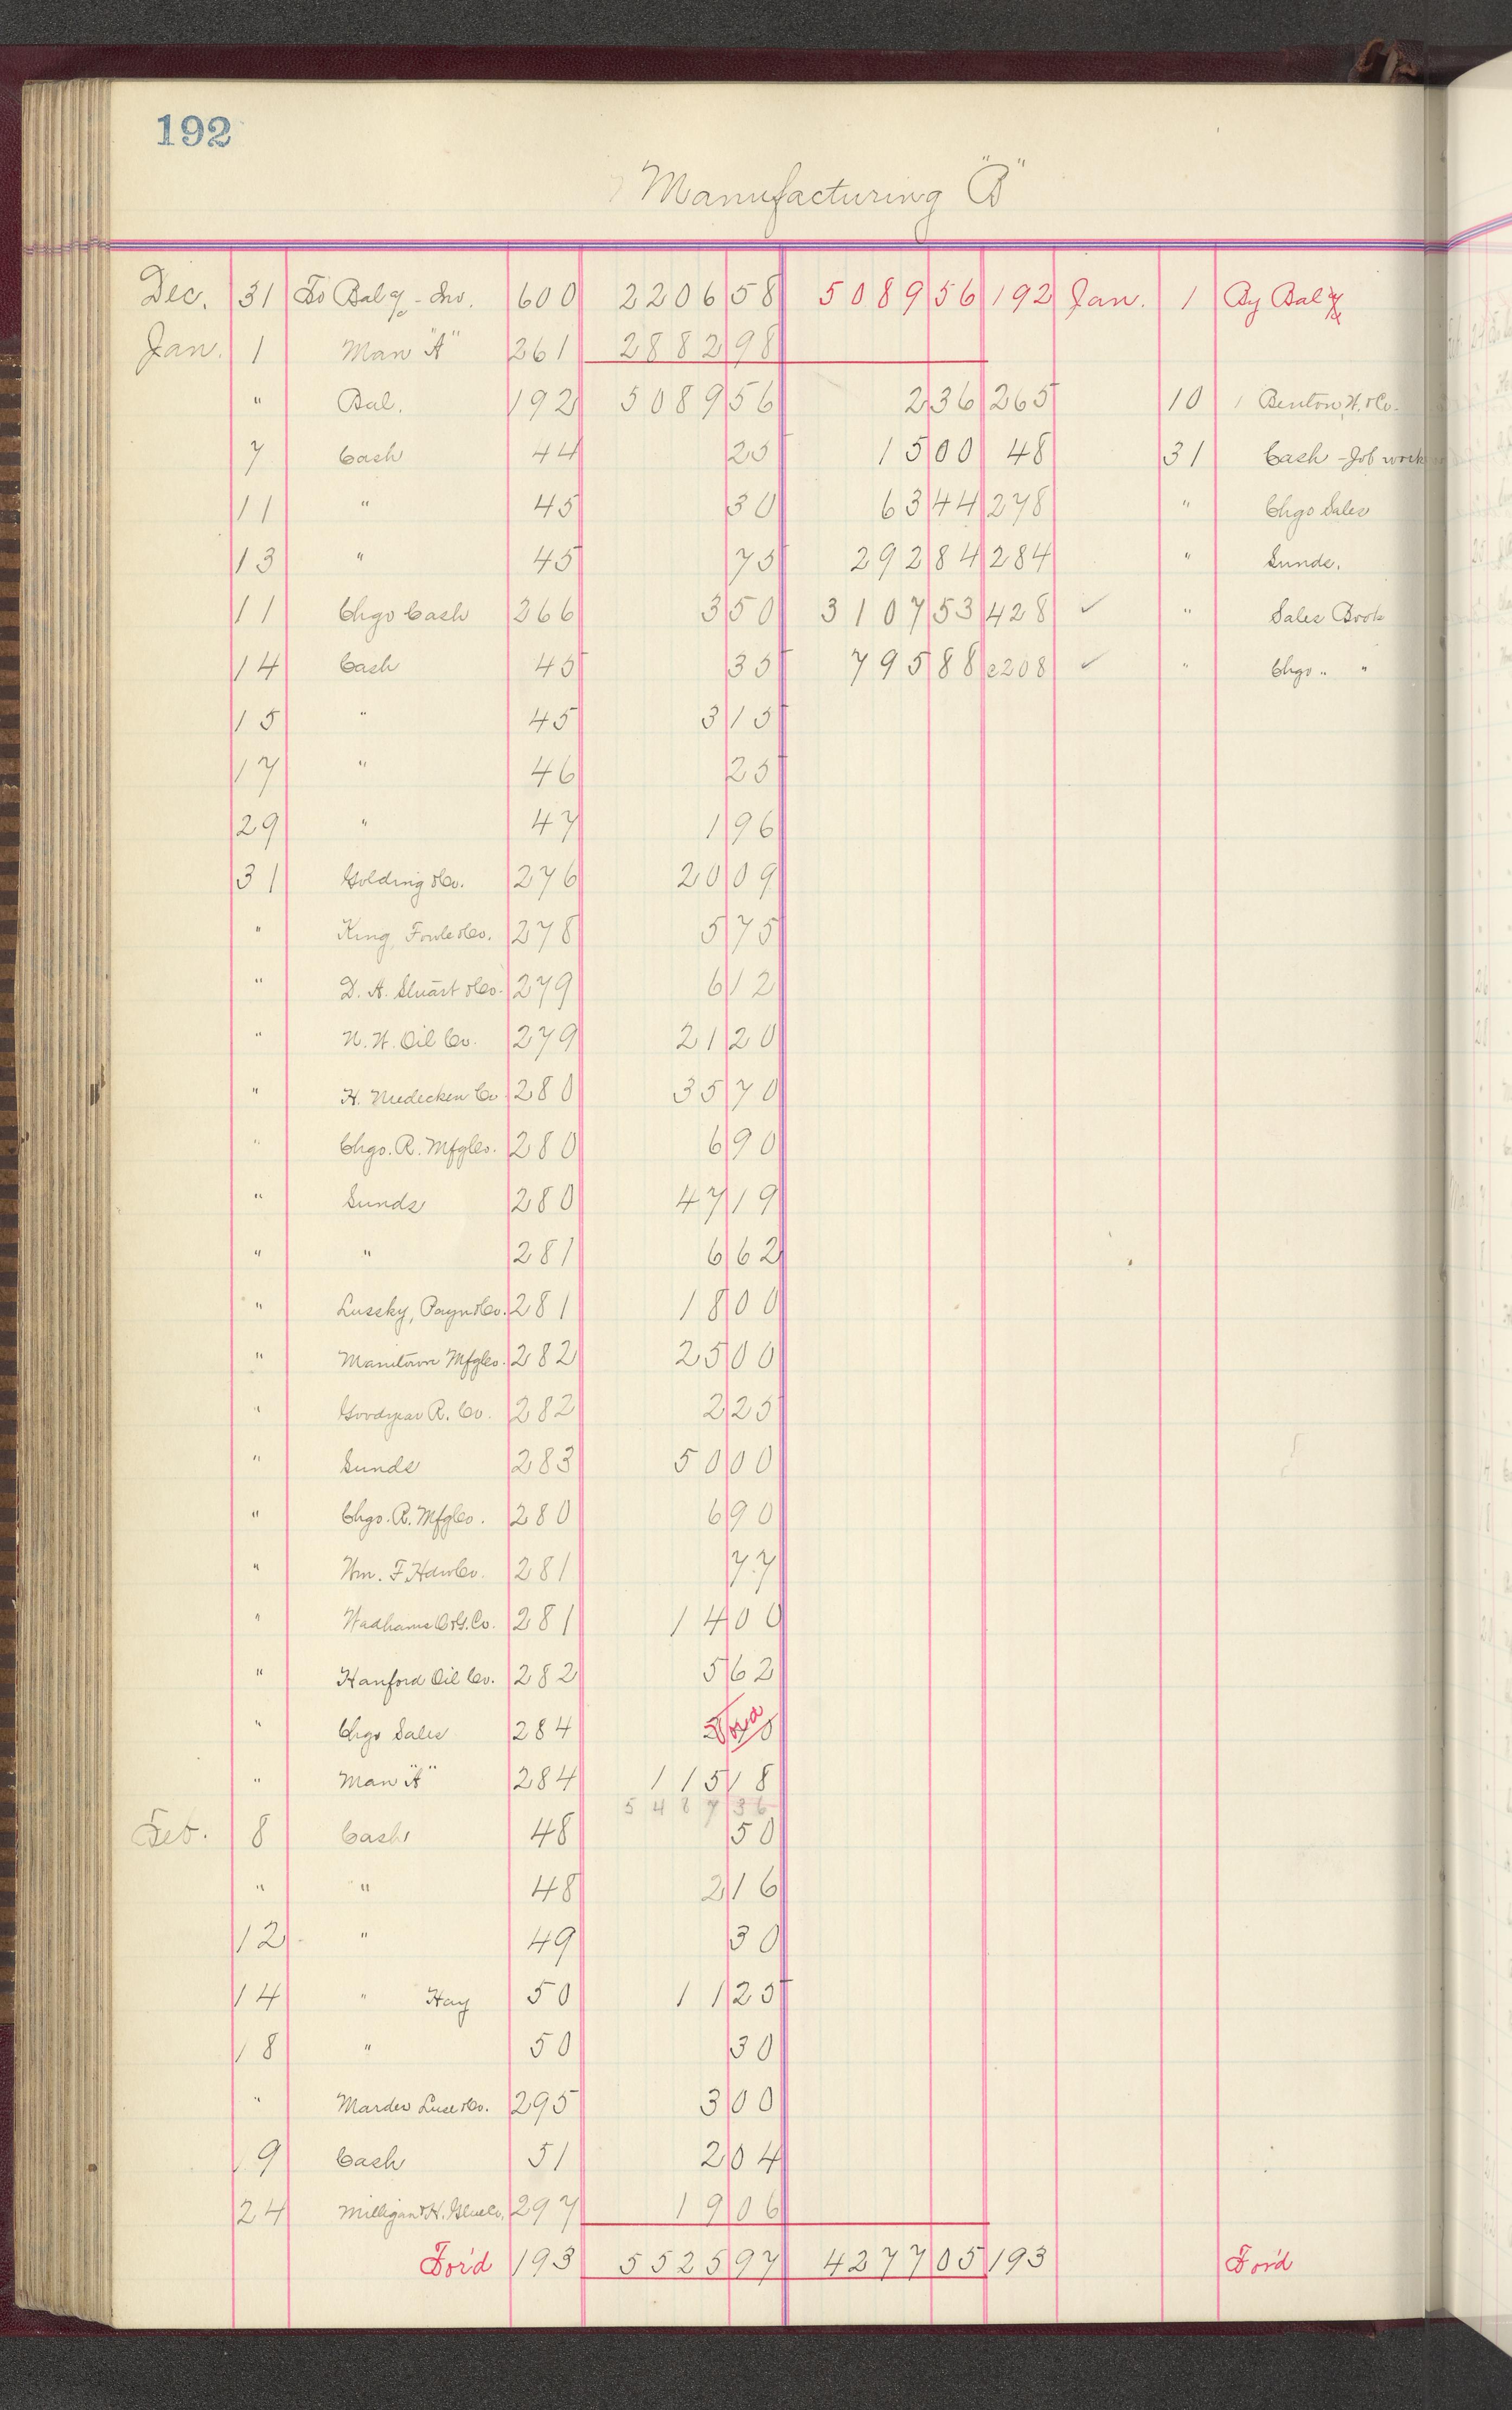 192
Manufacturing "B"
Dec. 31 To Bal % - Inv. 600 2206 58 5089 56 192 Jan. 1 By Bal %
Jan. 1 Man "A" 261 2882 98
" Bal. 192 5089 56 2 36 265 10 Benton, W. & Co.
7 Cash 44 25 15 00 48 31 Cash - Job work
11 " 45 30 63 44 278 " Chgo Sales
13 " 45 75 292 84 284 " Sunds.
11 Chgo Cash 266 3 50 3107 53 428 ✓ " Sales Book
14 Cash 45 35 795 88 c208 ✓ " Chgo " "
15 " 45 3 15
17 " 46 25
29 " 47 1 96
31 Golding & Co. 276 20 09
" King, Fowle & Co. 278 5 75
" D. A. Stuart & Co. 279 6 12
" N. W. Oil Co. 279 21 20
" H. Niedecken Co 280 35 70
" Chgo. R. Mfg Co. 280 6 90
" Sunds 280 47 19
" " 281 6 62
" Lussky, Payn & Co. 281 18 00
" Manitowoc Mfg Co. 282 25 00
" Goodyear R. Co. 282 2 25
" Sunds 283 50 00
" Chgo. R. Mfg Co. 280 6 90
" Wm. F. Co. 281 77
" Wadhams O & G. Co. 281 14 00
" Hanford Oil Co. 282 5 62
" Chgo Sales 284 Void
" Man "A" 284 115 18
5487 36
Feb. 8 Cash 48 50
" " 48 2 16
12 " 49 30
14 " Hay 50 11 25
18 " 50 30
" Marder Luse & Co. 295 3 00
19 Cash 51 2 04
24 Milligan & H. Glue Co. 297 19 06
For'd 193 5525 97 4277 05 193 For'd